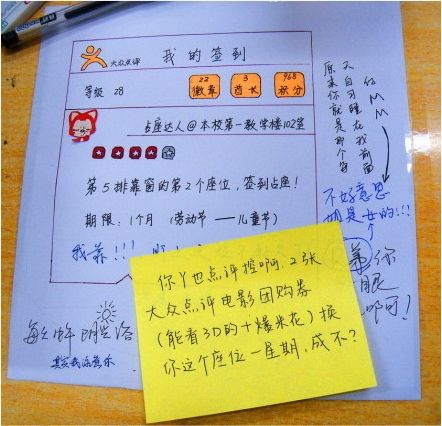 大众点评
我的签到
等级 28
22
徽章
3
酋长
968
积分
占座达人@本校第一教学楼102室
第5排靠窗的第2个座位,签到占座!
期限:1个月 (劳动节——儿童节)
我靠!!!
原来你就是那个
又自习睡在我前面
红MM
不好意思
姐是女的!!!
你
眼
啊!
你丫也点评控啊.2张
大众点评电影团购券
(能看3D的+爆米花)换
你这个座位一星期,成不?